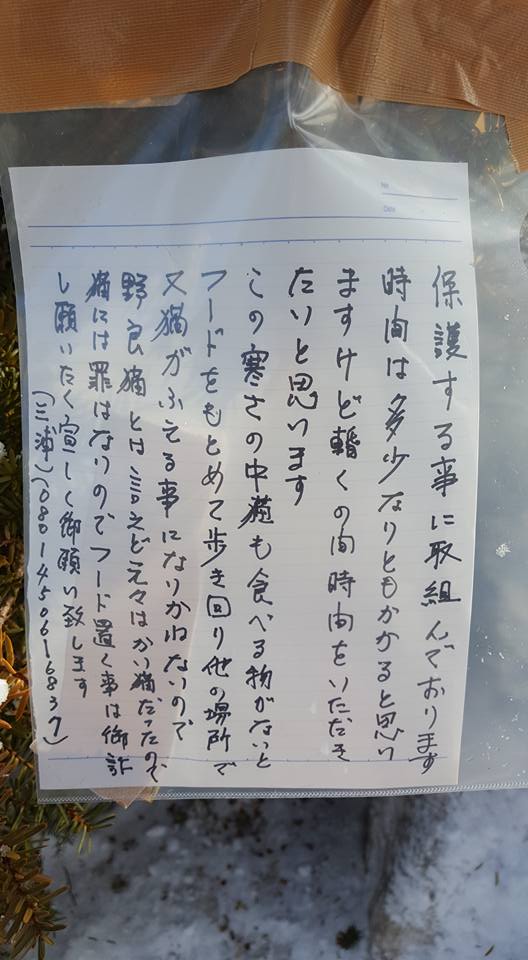 No.
Date
保護する事に取組んでおります
時間は多少なりともかかると思い
ますけど暫くの間時間をいただき
たいと思います
この寒さの中猫も食べる物がないと
フードをもとめて歩き回り他の場所で
又猫がふえる事になりかねないので
野良猫とは言えど元々はかい猫だったので
猫には罪はないのでフード置く事は御許
し願いたく宣しく御願い致します
(三浦)(080145061６837)